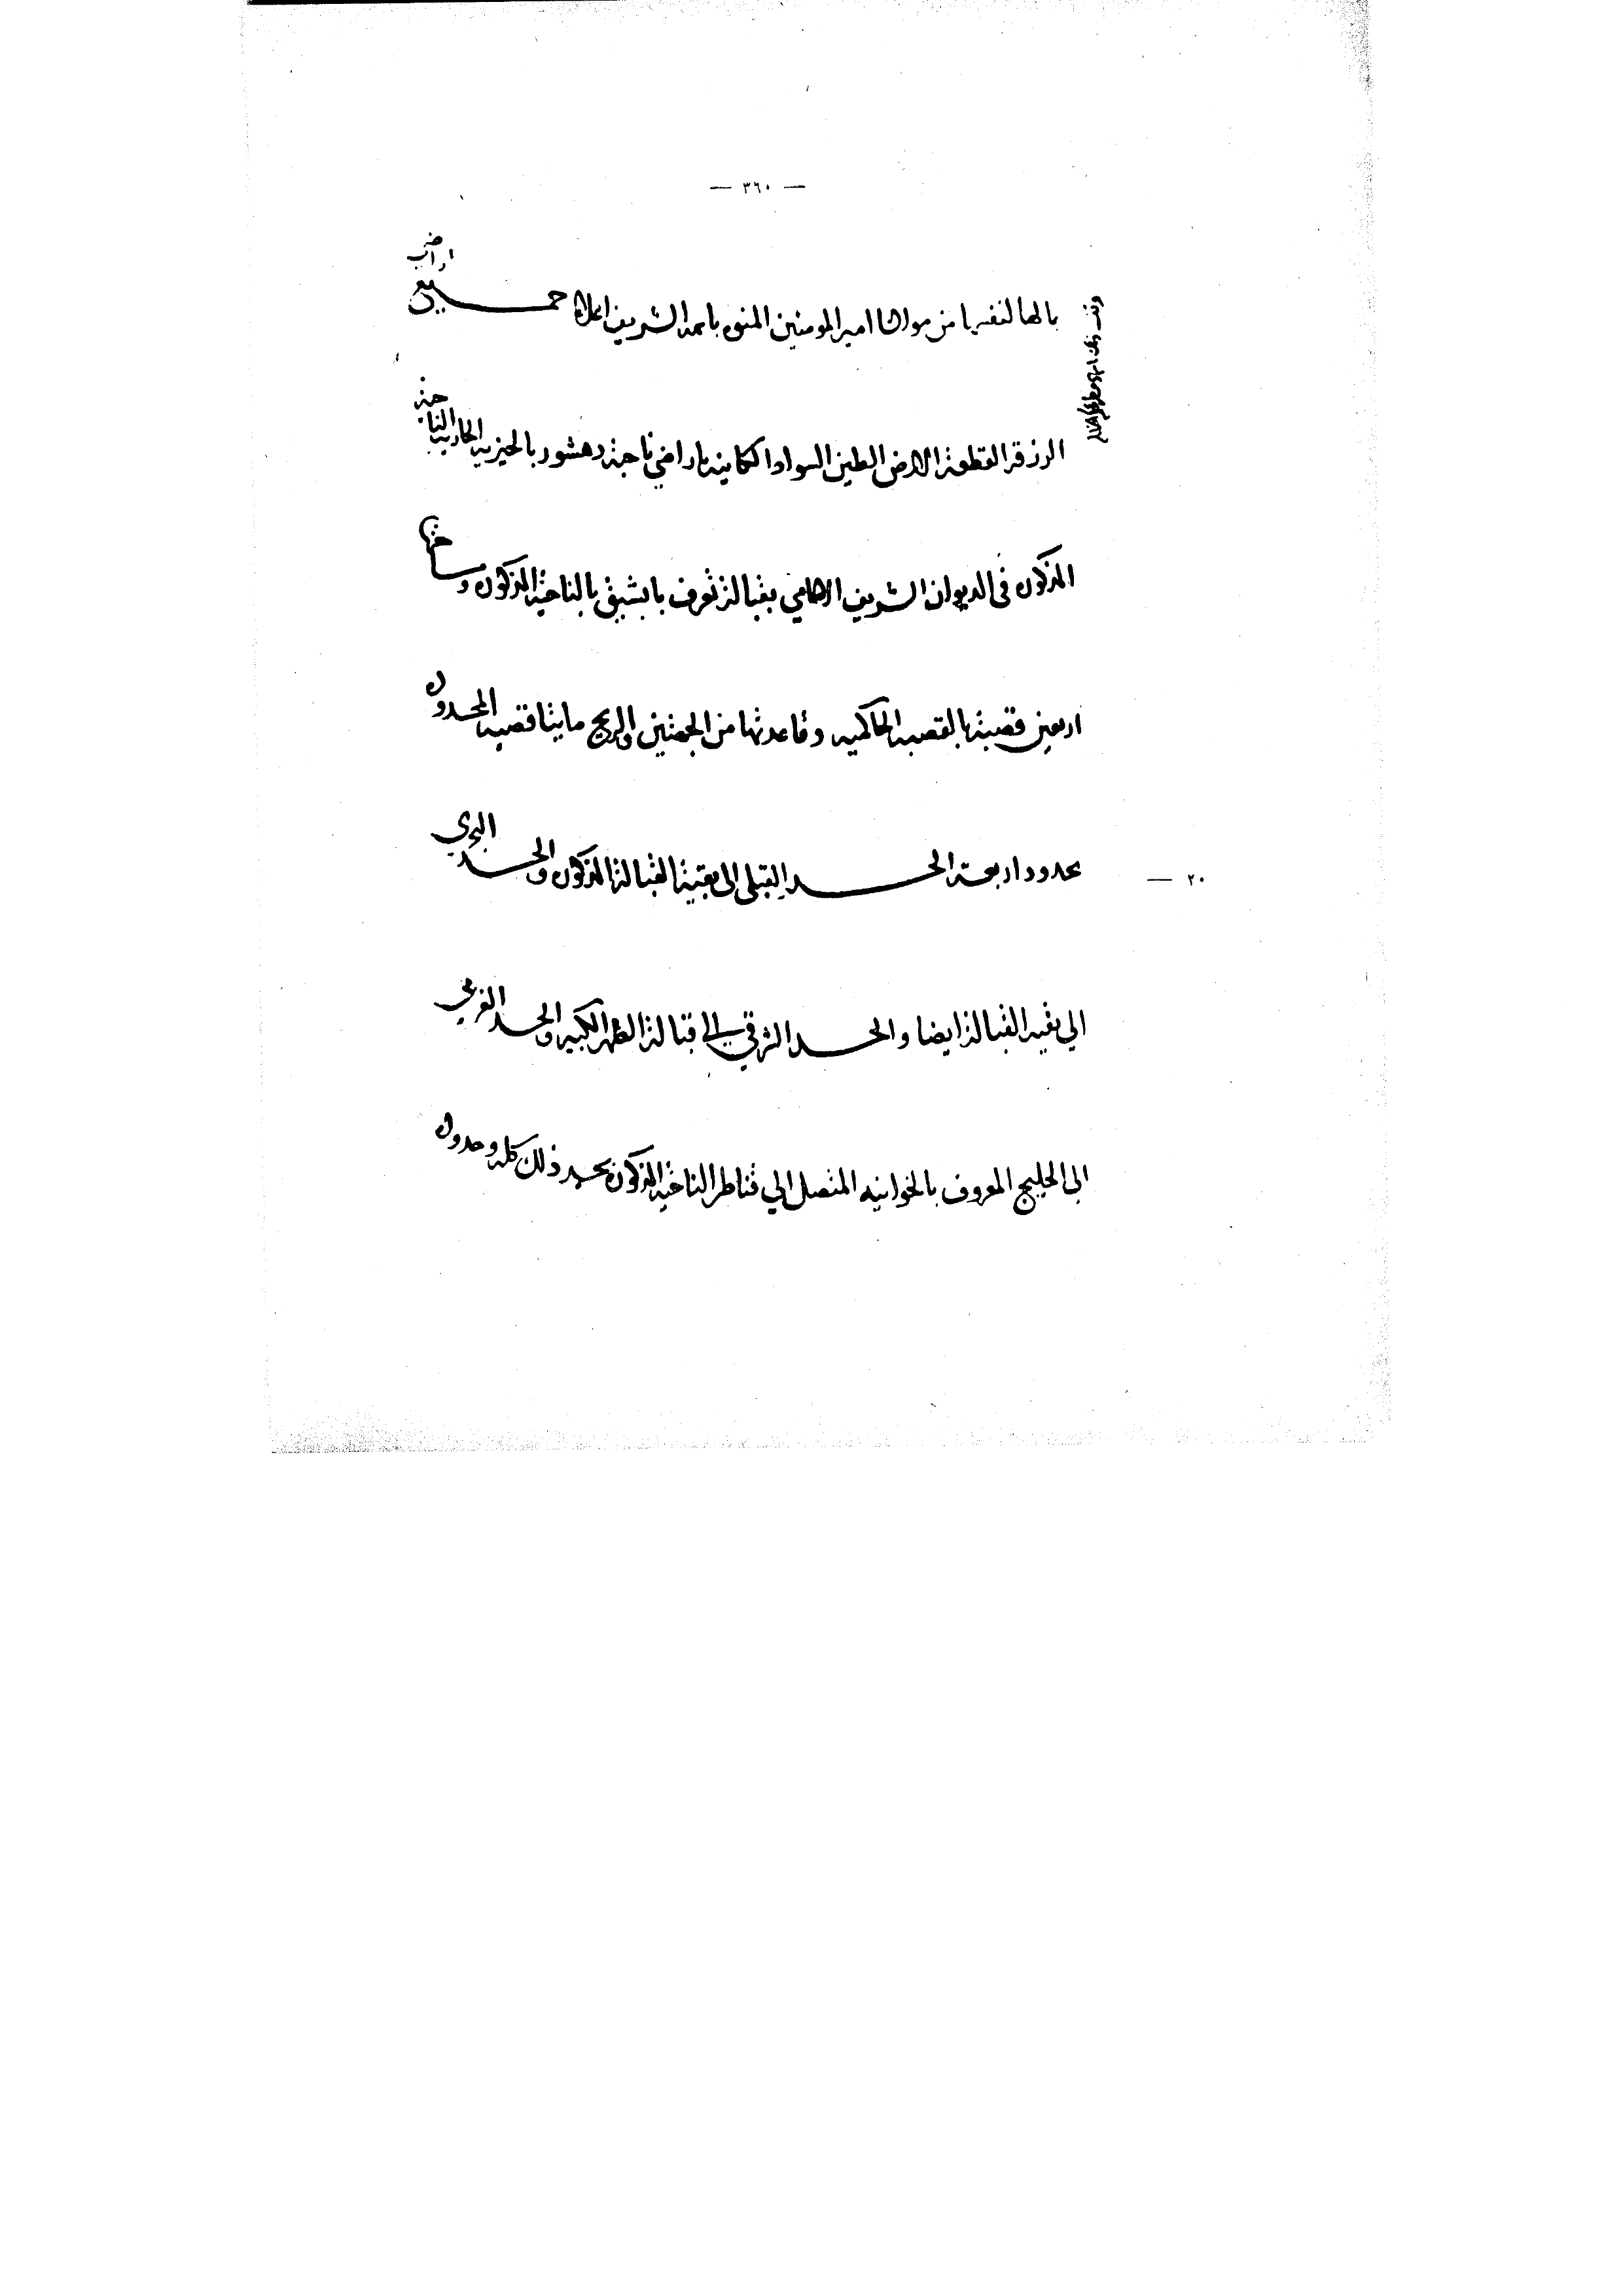 — ٣٦٠ —
بمالها لنفسها من مولانا امير المومنين المنوه باسمه الشريف اعلاه جميع اراضي
الرزقه القطعة الارض الطين السواد الكاينه باراضي ناحية دهشور بالجيزيه الجاريه الناحية
المذكوره في الديوان الشريف الامامي بقبالة تعرف بابشيق بالناحية المذكوره ومساحتها
اربعين قصبة بالقصبه الحاكميه وقاعدتها من الجهتين والربع مايتا قصبه المحدوده
٢٠ — بحدود اربعة الحد القبلي الى بقية القبالة المذكوره والحد البحري
الي بقيه القبالة ايضا والحد الشرقي الى قبالة الظهر الكبير والحد الغربي
الى الخليج المعروف بالخوانيه المتصل الي قناطر الناحيه المذكوره بحد ذلك كله وحدوده